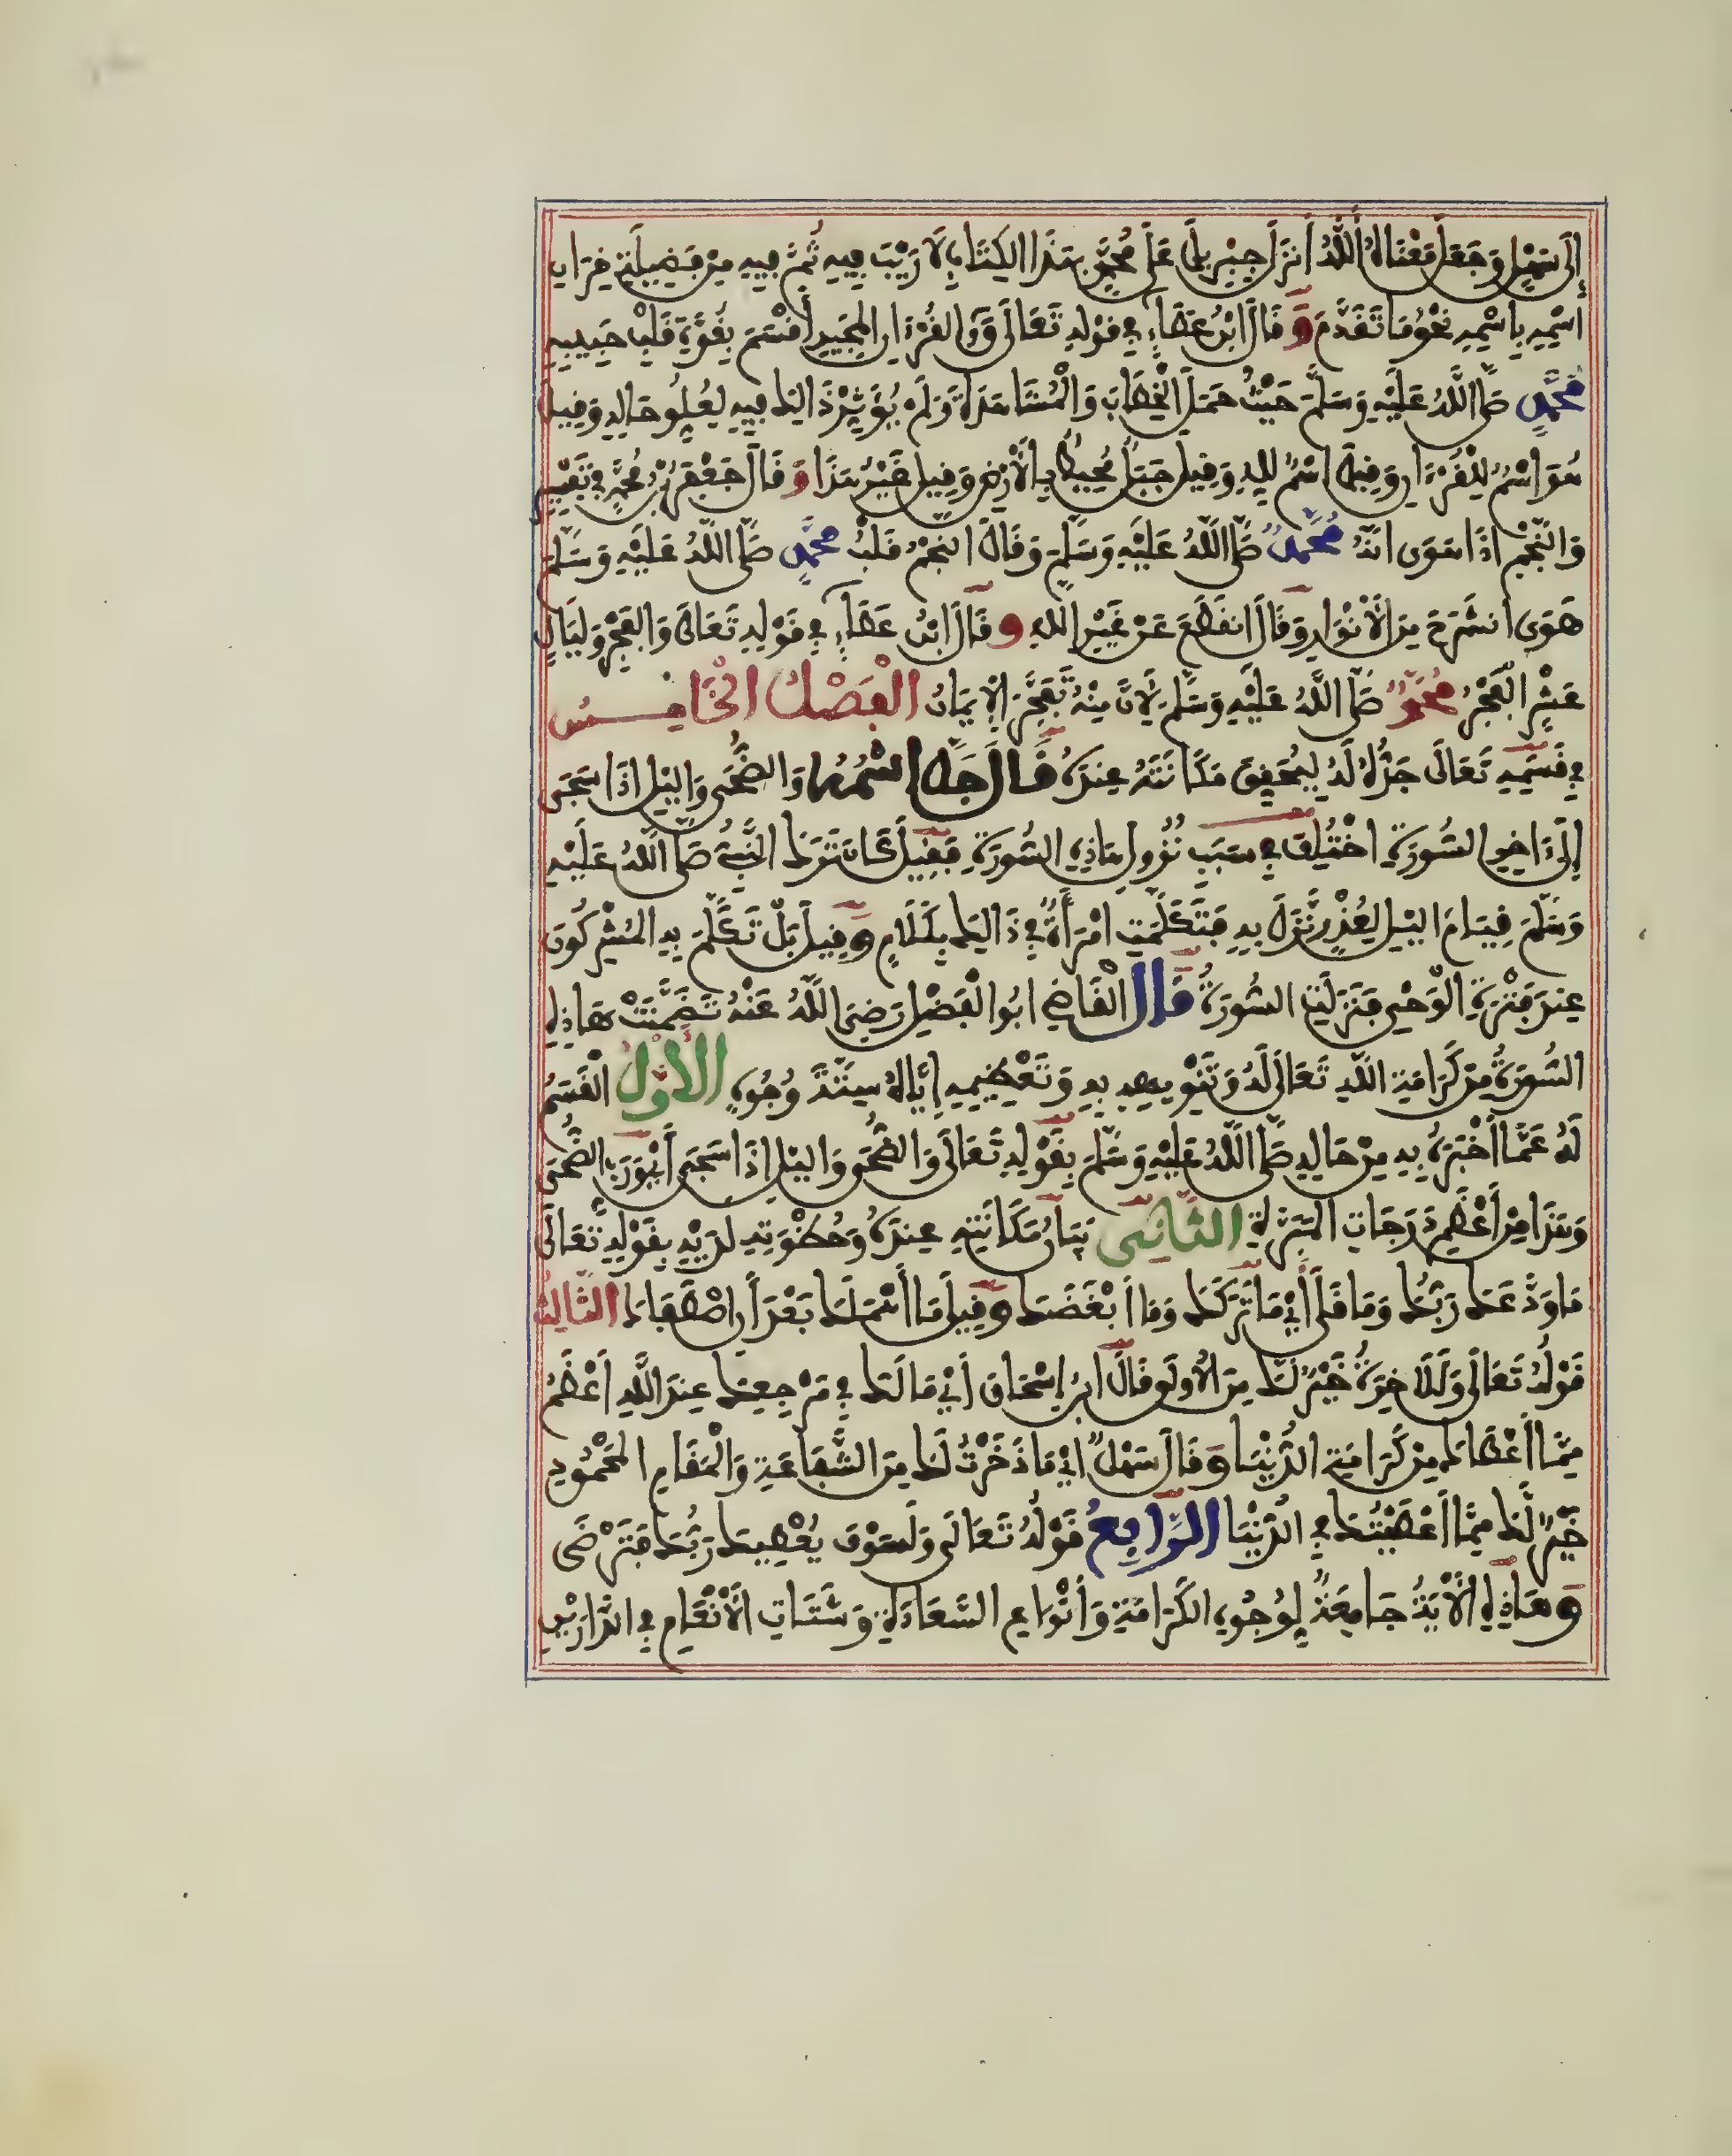 إِلَى سَهْلٍ وَجَعَلَ مَعْنَاهُ اللَّهُ أَنزَلَ جِبْرِيلَ عَلَى مُحَمَّدٍ بِهَذَا الْكِتَابِ لَا رَيْبَ فِيهِ ثُمَّ فِيهِ مِنْ فَضِيلَةِ قِرَانِ
اسْمِهِ بِاسْمِهِ نَحْوُ مَا تَقَدَّمَ وَقَالَ ابْنُ عَطَاءٍ فِي قَوْلِهِ تَعَالَى قَ وَالْقُرْءَانِ الْمَجِيدِ أَقْسَمَ بِقُوَّةِ قَلْبِ حَبِيبِهِ
مُحَمَّدٍ صَلَّى اللَّهُ عَلَيْهِ وَسَلَّمَ حَيْثُ حَمَلَ الْخِطَابَ وَالْمُشَاهَدَةَ وَلَمْ يُؤَثِّرْ ذَالِكَ فِيهِ لِعُلُوِّ حَالِهِ وَقِيلَ
هُوَ اسْمٌ لِلْقُرْءَانِ وَقِيلَ اسْمٌ لِلهِ وَقِيلَ جَبَلٌ مُحِيطٌ بِالْأَرْضِ وَقِيلَ غَيْرُ هَذَا وَقَالَ جَعْفَرُ بْنُ مُحَمَّدٍ فِي تَفْسِيرِ
وَالنَّجْمِ إِذَا هَوَى انَّهُ مُحَمَّدٌ صَلَّى اللَّهُ عَلَيْهِ وَسَلَّمَ وَقَالَ النَّجْمُ قَلْبُ مُحَمَّدٍ صَلَّى اللَّهُ عَلَيْهِ وَسَلَّمَ
هَوَى انشَرَحَ مِنَ الْأَنْوَارِ وَقَالَ انقَطَعَ عَنْ غَيْرِ اللَّهِ وَقَالَ ابْنُ عَطَاءٍ فِي قَوْلِهِ تَعَالَى وَالْفَجْرِ وَلَيَالٍ
عَشْرٍ الْفَجْرُ مُحَمَّدٌ صَلَّى اللَّهُ عَلَيْهِ وَسَلَّمَ لِأَنَّ مِنْهُ تَفَجَّرَ الْإِيمَانُ الْفَصْلُ الْخَامِسُ
فِي قَسَمِهِ تَعَالَى جَدُّهُ لَهُ لِيُحَقِّقَ مَكَانَتَهُ عِندَهُ قَالَ جَلَّ اسْمُهُ وَالضُّحَى وَالَيْلِ إِذَا سَجَى
إِلَى ءَاخِرِ السُّورَةِ اخْتُلِفَ فِي سَبَبِ نُزُولِ هَاذِهِ السُّورَةِ فَقِيلَ كَانَ تَرَكَ النَّبِيُّ صَلَّى اللَّهُ عَلَيْهِ
وَسَلَّمَ قِيَامَ الَيْلِ لِعُذْرٍ نَزَلَ بِهِ فَتَكَلَّمَتِ امْرَأَةٌ فِي ذَالِكَ بِكَلَامٍ وَقِيلَ بَلْ تَكَلَّمَ بِهِ الْمُشْرِكُونَ
عِندَ فَتْرَةِ الْوَحْيِ فَنَزَلَتِ السُّورَةُ قَالَ الْقَاضِي ابُو الْفَضْلِ رَضِيَ اللَّهُ عَنْهُ تَضَمَّنَتْ هَاذِهِ
السُّورَةُ مِنْ كَرَامَةِ اللَّهِ تَعَالَى لَهُ وَتَنْوِيهِهِ بِهِ وَتَعْظِيمِهِ إِيَّاهُ سِتَّةَ وُجُوهٍ الْأَوَّلُ الْقَسَمُ
لَهُ عَمَّا أَخْبَرَهُ بِهِ مِنْ حَالِهِ صَلَّى اللَّهُ عَلَيْهِ وَسَلَّمَ بِقَوْلِهِ تَعَالَى وَالضُّحَى وَالَيْلِ إِذَا سَجَى أَيْ وَرَبِّ الضُّحَى
وَهَذَا مِنْ أَعْظَمِ دَرَجَاتِ الْمَبَرَّةِ الثَّانِي بَيَانُ مَكَانَتِهِ عِندَهُ وَحُظْوَتِهِ لَدَيْهِ بِقَوْلِهِ تَعَالَى
مَا وَدَّعَكَ رَبُّكَ وَمَا قَلَى أَيْ مَا تَرَكَكَ وَمَا أَبْغَضَكَ وَقِيلَ مَا أَهْمَلَكَ بَعْدَ أَنِ اصْطَفَاكَ الثَّالِثُ
قَوْلُهُ تَعَالَى وَلَلَاخِرَةُ خَيْرٌ لَكَ مِنَ الْأُولَى قَالَ ابْنُ إِسْحَاقَ أَيْ مَا لَكَ فِي مَرْجِعِكَ عِندَ اللَّهِ أَعْظَمُ
مِمَّا أَعْطَاكَ مِنْ كَرَامَةِ الدُّنْيَا وَقَالَ سَهْلٌ أَيْ مَا ذَخَرْتُ لَكَ مِنَ الشَّفَاعَةِ وَالْمَقَامِ الْمَحْمُودِ
خَيْرٌ لَكَ مِمَّا أَعْطَيْتُكَ فِي الدُّنْيَا الرَّابِعُ قَوْلُهُ تَعَالَى وَلَسَوْفَ يُعْطِيكَ رَبُّكَ فَتَرْضَى
وَهَاذِهِ الْأَيَةُ جَامِعَةٌ لِوُجُوهِ الْكَرَامَةِ وَأَنْوَاعِ السَّعَادَةِ وَشَتَاتِ الْأَنْعَامِ فِي الدَّارَيْنِ